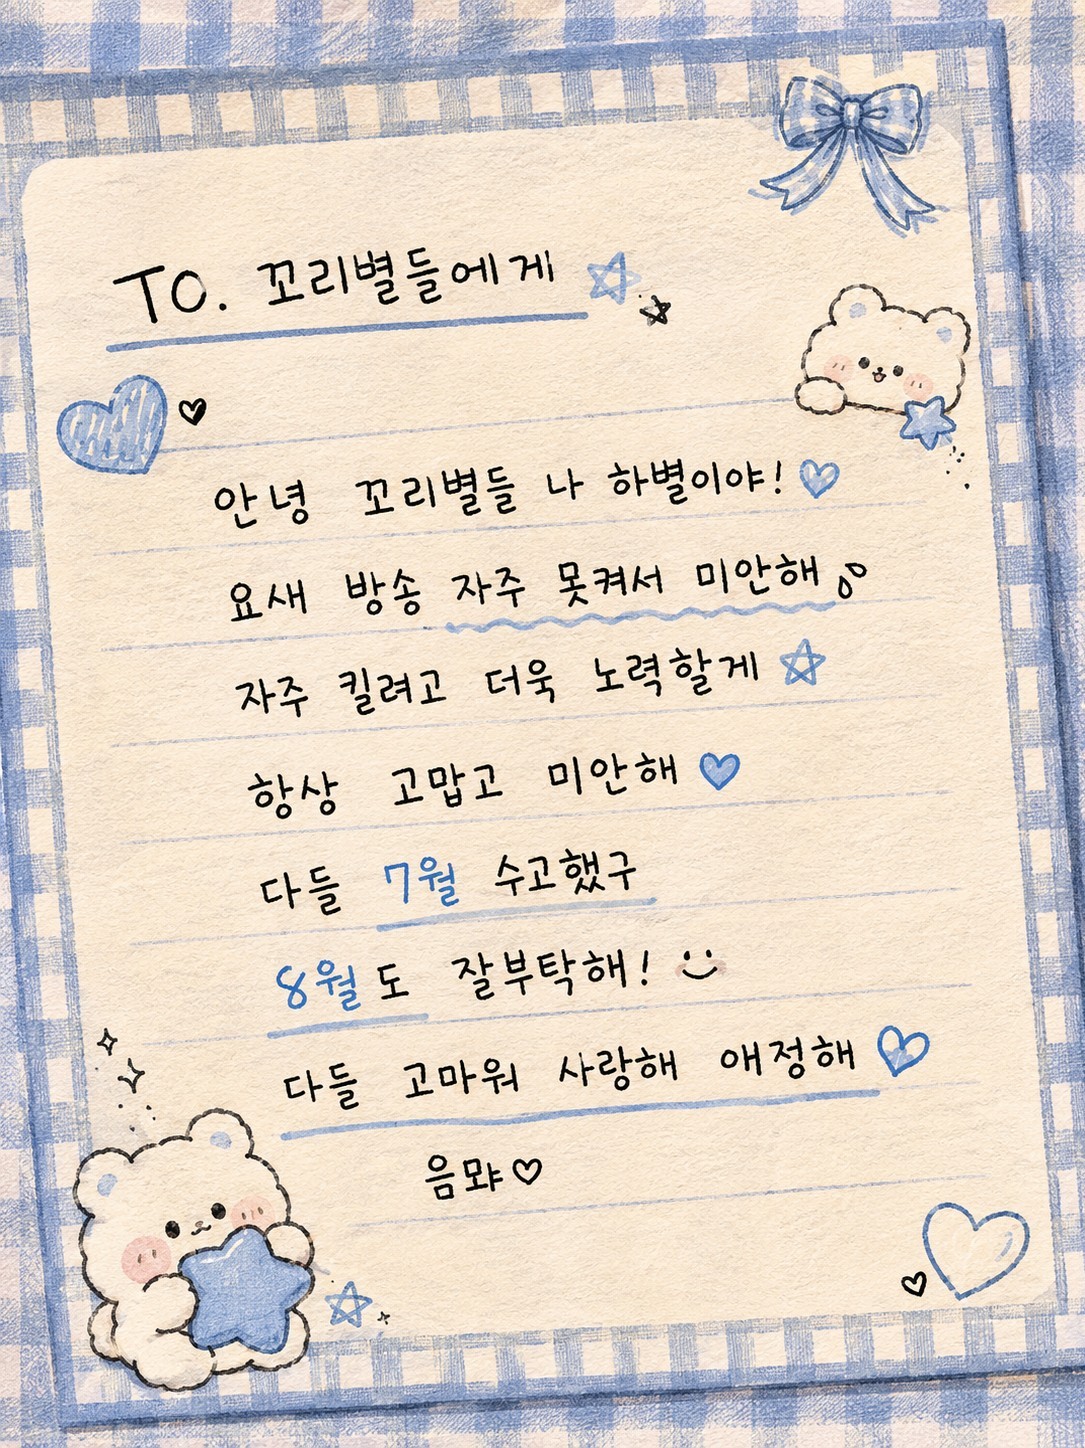 TO. 꼬리별들에게
안녕 꼬리별들 나 하별이야!
요새 방송 자주 못켜서 미안해
자주 킬려고 더욱 노력할게
항상 고맙고 미안해
다들 7월 수고했구
8월도 잘부탁해!
다들 고마워 사랑해 애정해
음뫄